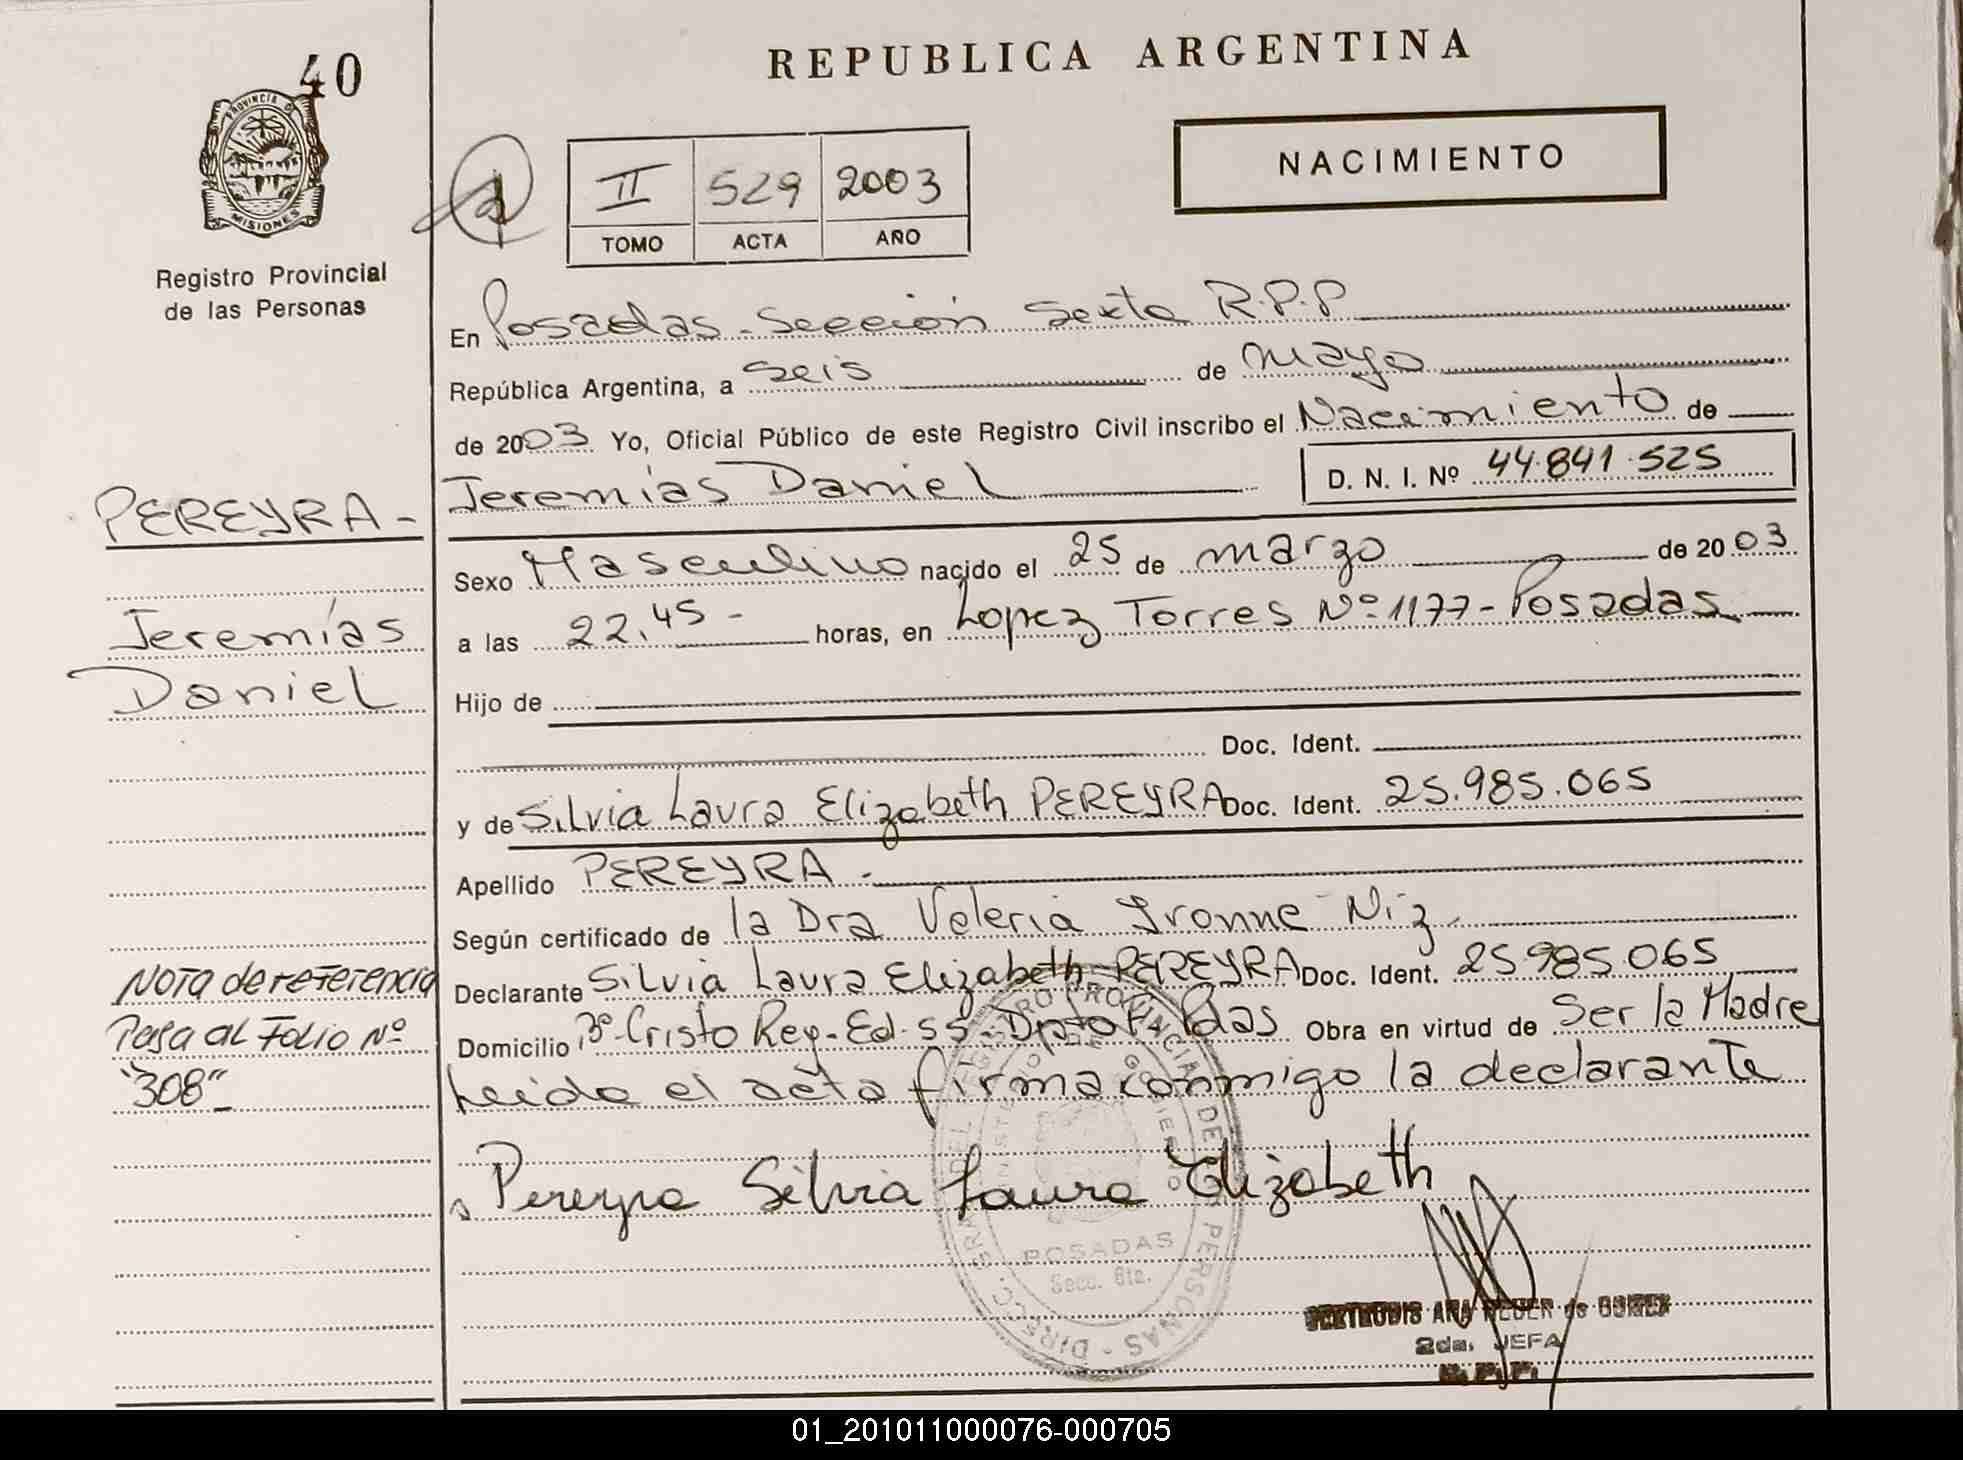 40
PROVINCIA DE
MISIONES
Registro Provincial
de las Personas
REPUBLICA ARGENTINA
NACIMIENTO
II 529 2003
TOMO ACTA AÑO
En Posadas - Sección Sexta R.P.P
República Argentina, a seis de mayo
de 2003 Yo, Oficial Público de este Registro Civil inscribo el Nacimiento de
Jeremías Daniel D. N. I. Nº 44.841.525
PEREYRA -
Jeremías
Daniel
Sexo Masculino nacido el 25 de marzo de 2003
a las 22,45 - horas, en Lopez Torres Nº 1177 - Posadas
Hijo de
Doc. Ident.
y de Silvia Laura Elizabeth PEREYRA Doc. Ident. 25.985.065
Apellido PEREYRA -
Según certificado de la Dra Veleria Ivonne Niz
Declarante Silvia Laura Elizabeth PEREYRA Doc. Ident. 25985065
Domicilio Bº Cristo Rey - Ed. 55 - Dpto Pdas Obra en virtud de Ser la Madre
Leida el acta firma conmigo la declarante
NOTA de referencia
Pasa al Folio Nº
"308"
Pereyra Silvia Laura Elizabeth
POSADAS
Secc. 6ta.
2da. JEFA
01_201011000076-000705